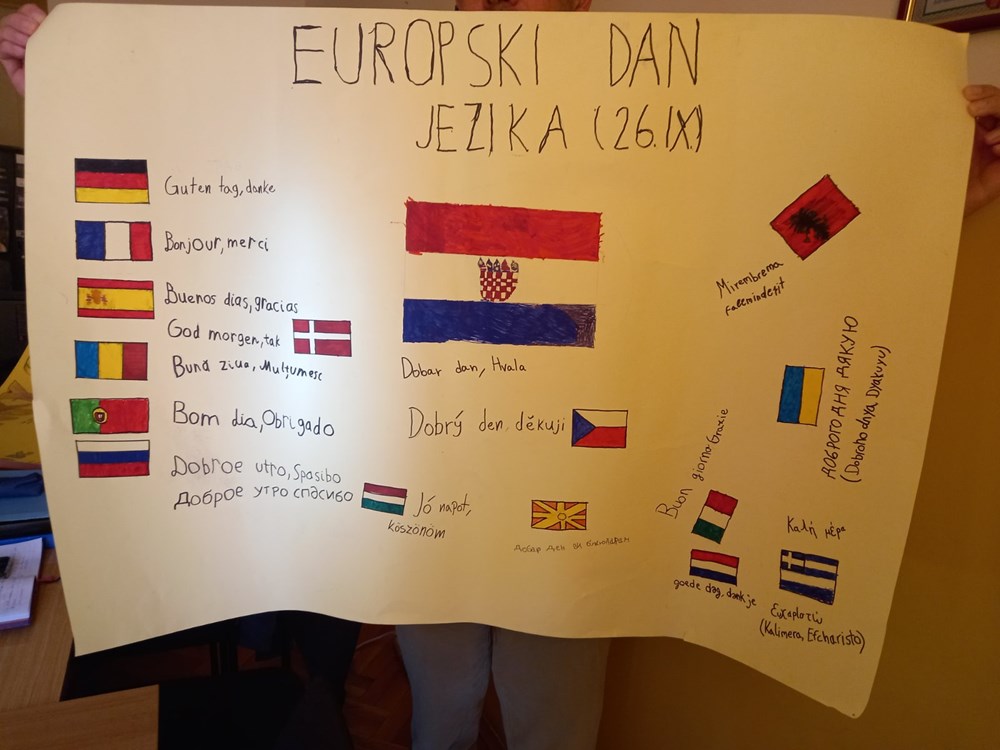 EUROPSKI DAN
JEZIKA (26.IX.)
Guten tag, danke
Bonjour, merci
Buenos dias, gracias
God morgen, tak
Bună ziua, Mulțumesc
Bom dia, Obrigado
Dobroe utro, Spasibo
Доброе утро спасибо
Dobar dan, Hvala
Dobrý den, děkuji
Jó napot,
köszönöm
Добар ден
Mirembrema
faleminderit
ДОБРОГО ДНЯ ДЯКУЮ
(Dobroho dnya, Dyakuyu)
Buon giorno Grazie
goede dag, dank je
Καλή μέρα
Ευχαριστώ
(Kalimera, Efcharistó)